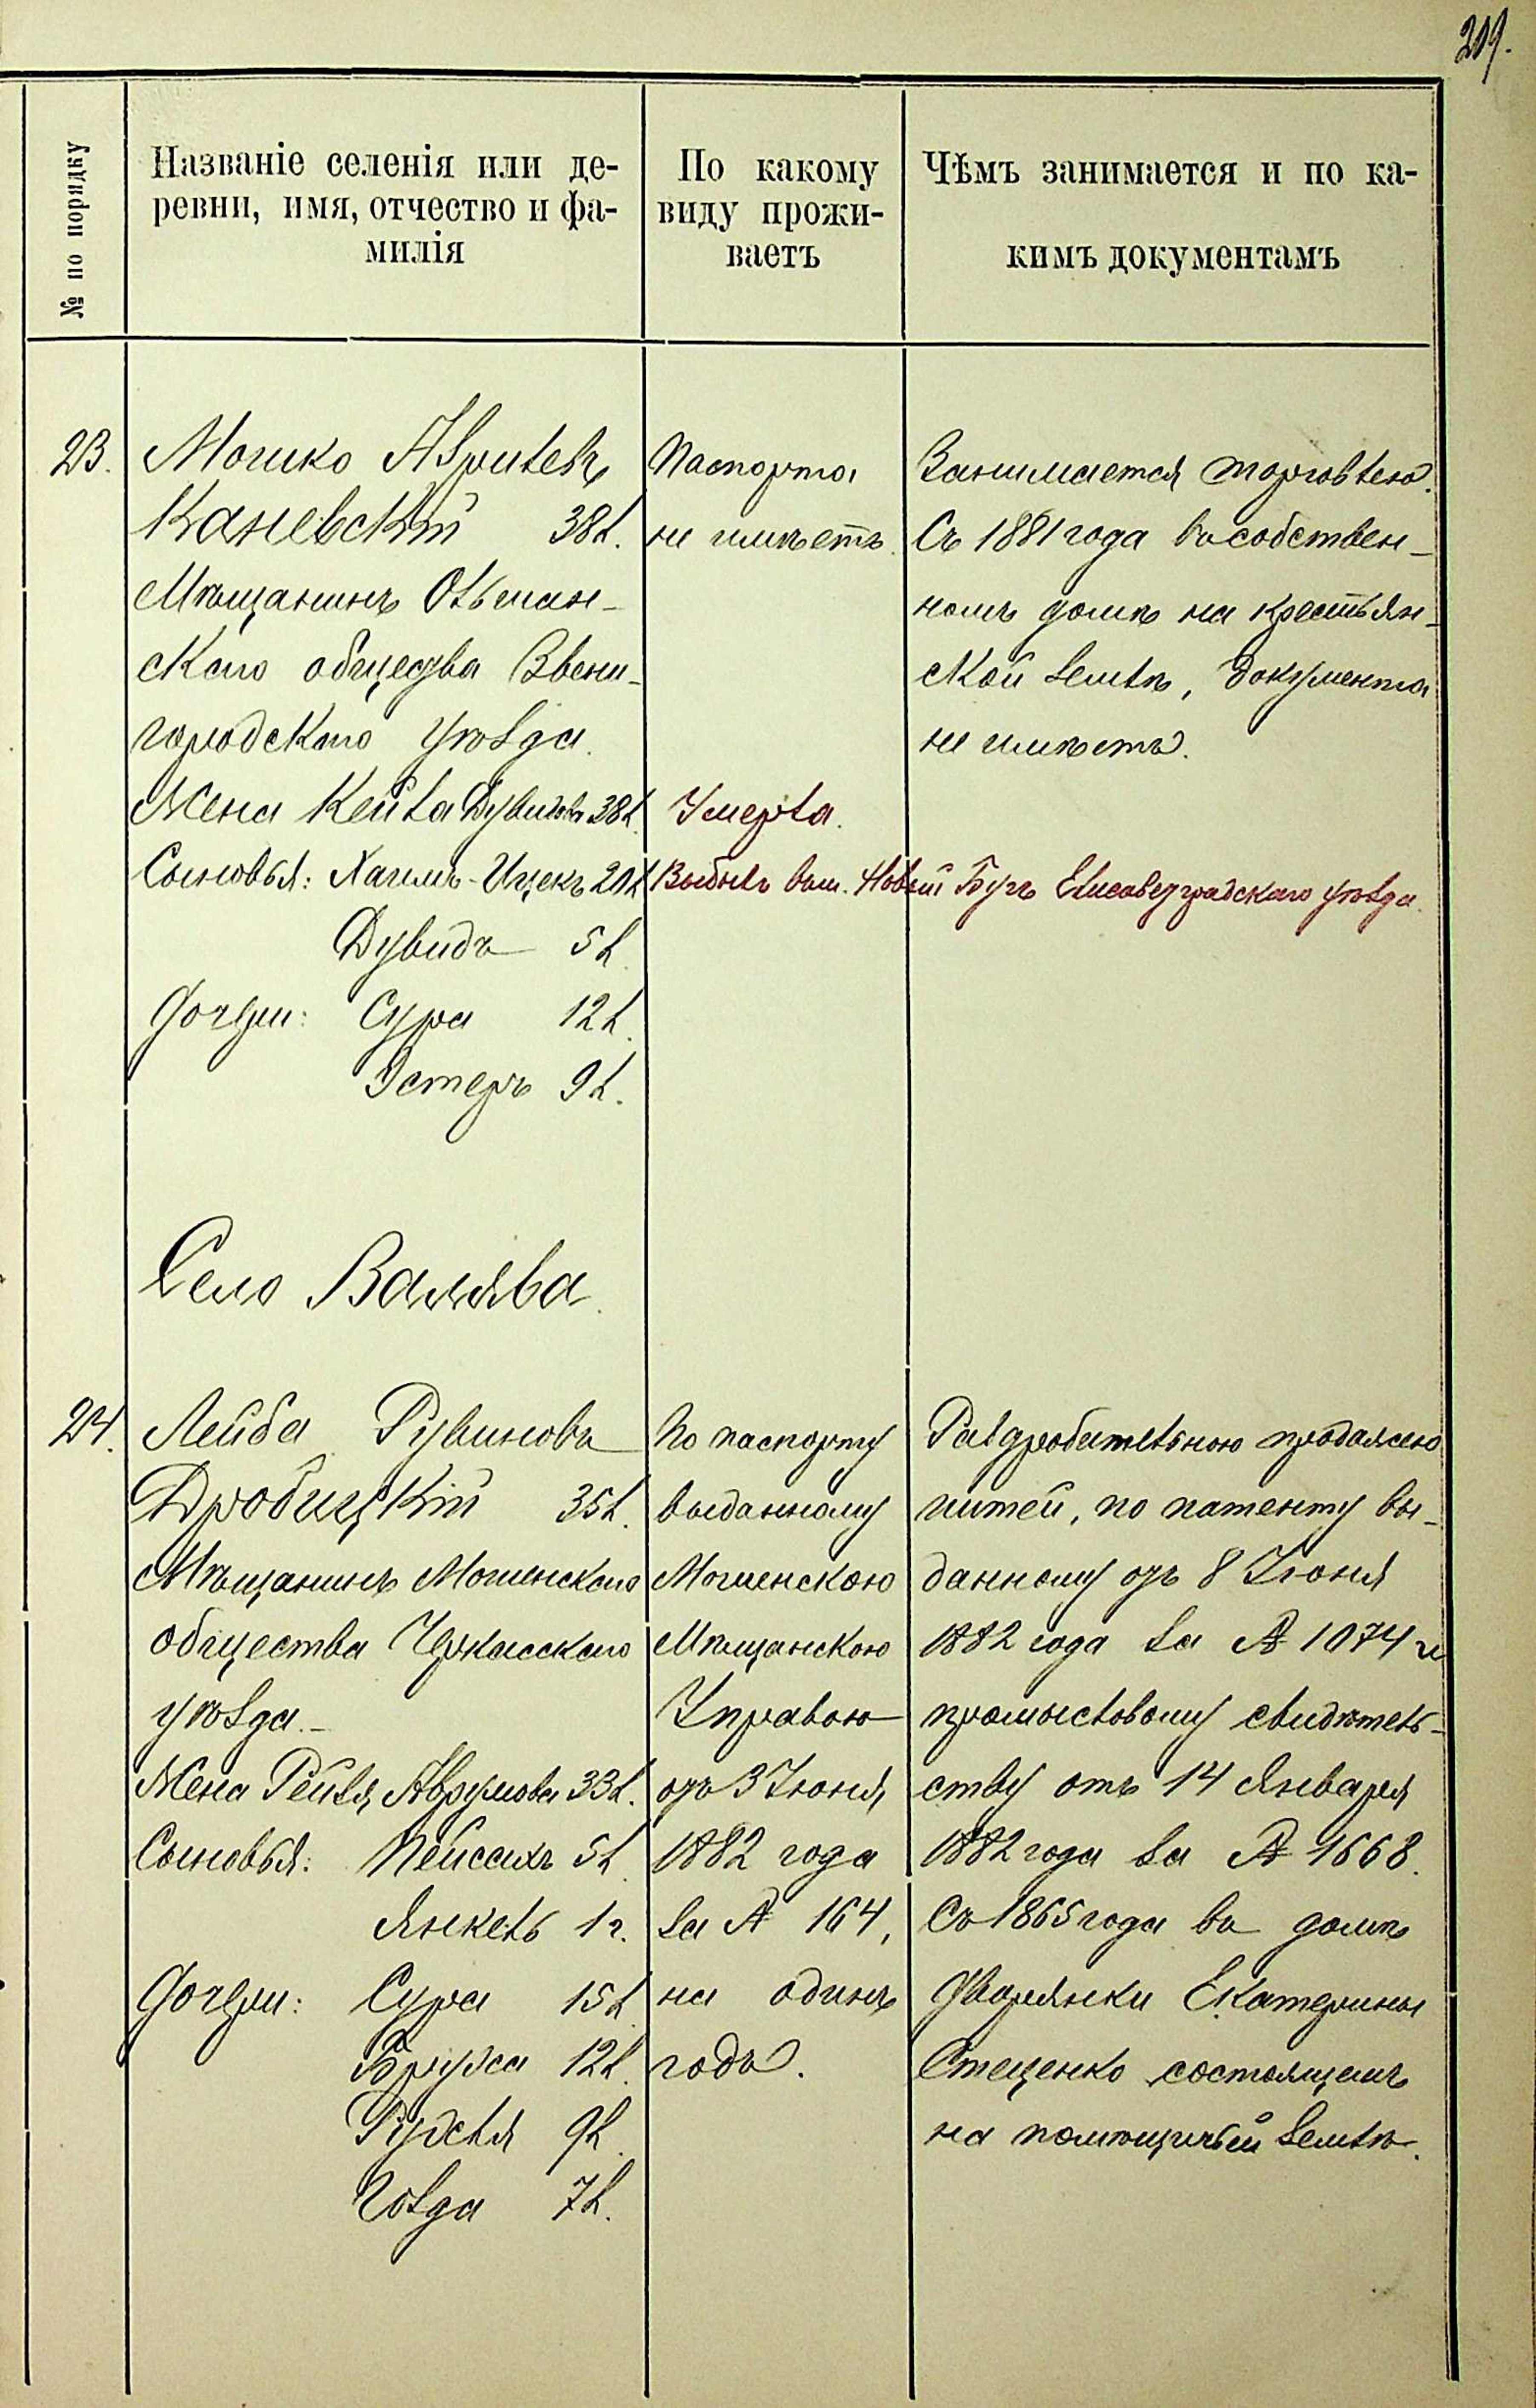 209.
№ по порядку
Названіе селенія или де-
ревни, имя, отчество и фа-
милія
По какому
виду прожи-
ваетъ
Чѣмъ занимается и по ка-
кимъ документамъ
23.
Мошко
Каневскій 38 л.
Мѣщанинъ Ольшан-
скаго общества Звени-
городскаго уѣзда.
Жена Кейла Дувидова 38 л.
Сыновья: Хаимъ-Ицекъ 20 л.
Дувидъ 5 л.
Дочери: Сура 12 л.
Эстеръ 9 л.
Паспорта
не имѣетъ.
Умерла.
Выбылъ въ м. Новый Бугъ Елисаветградскаго уѣзда.
Занимается торговлею.
Съ 1881 года въ собствен-
номъ домѣ на крестьян-
ской землѣ, документа
не имѣетъ.
Село Валява.
24.
Лейба Рувиновъ
Дробицкій 35 л.
Мѣщанинъ Мошенскаго
общества Черкасскаго
уѣзда.-
Жена Рейзя Аврумова 33 л.
Сыновья: Пейсахъ 5 л.
Янкель 1 г.
Дочери: Сура 15 л.
12 л.
Рухля 9 л.
Голда 7 л.
По паспорту
выданному
Мошенскою
Мѣщанскою
Управою
отъ 3 Іюня
1882 года
за № 164,
на одинъ
годъ.
Раздробительною продажею
питей, по патенту вы-
данному отъ 8 Іюня
1882 года за № 1074 и
промысловому свидѣтель-
ству отъ 14 Января
1882 года за № 1668.
Съ 1865 года въ домѣ
дворянки Екатерины
Стеценко состоящемъ
на помѣщичьей землѣ.